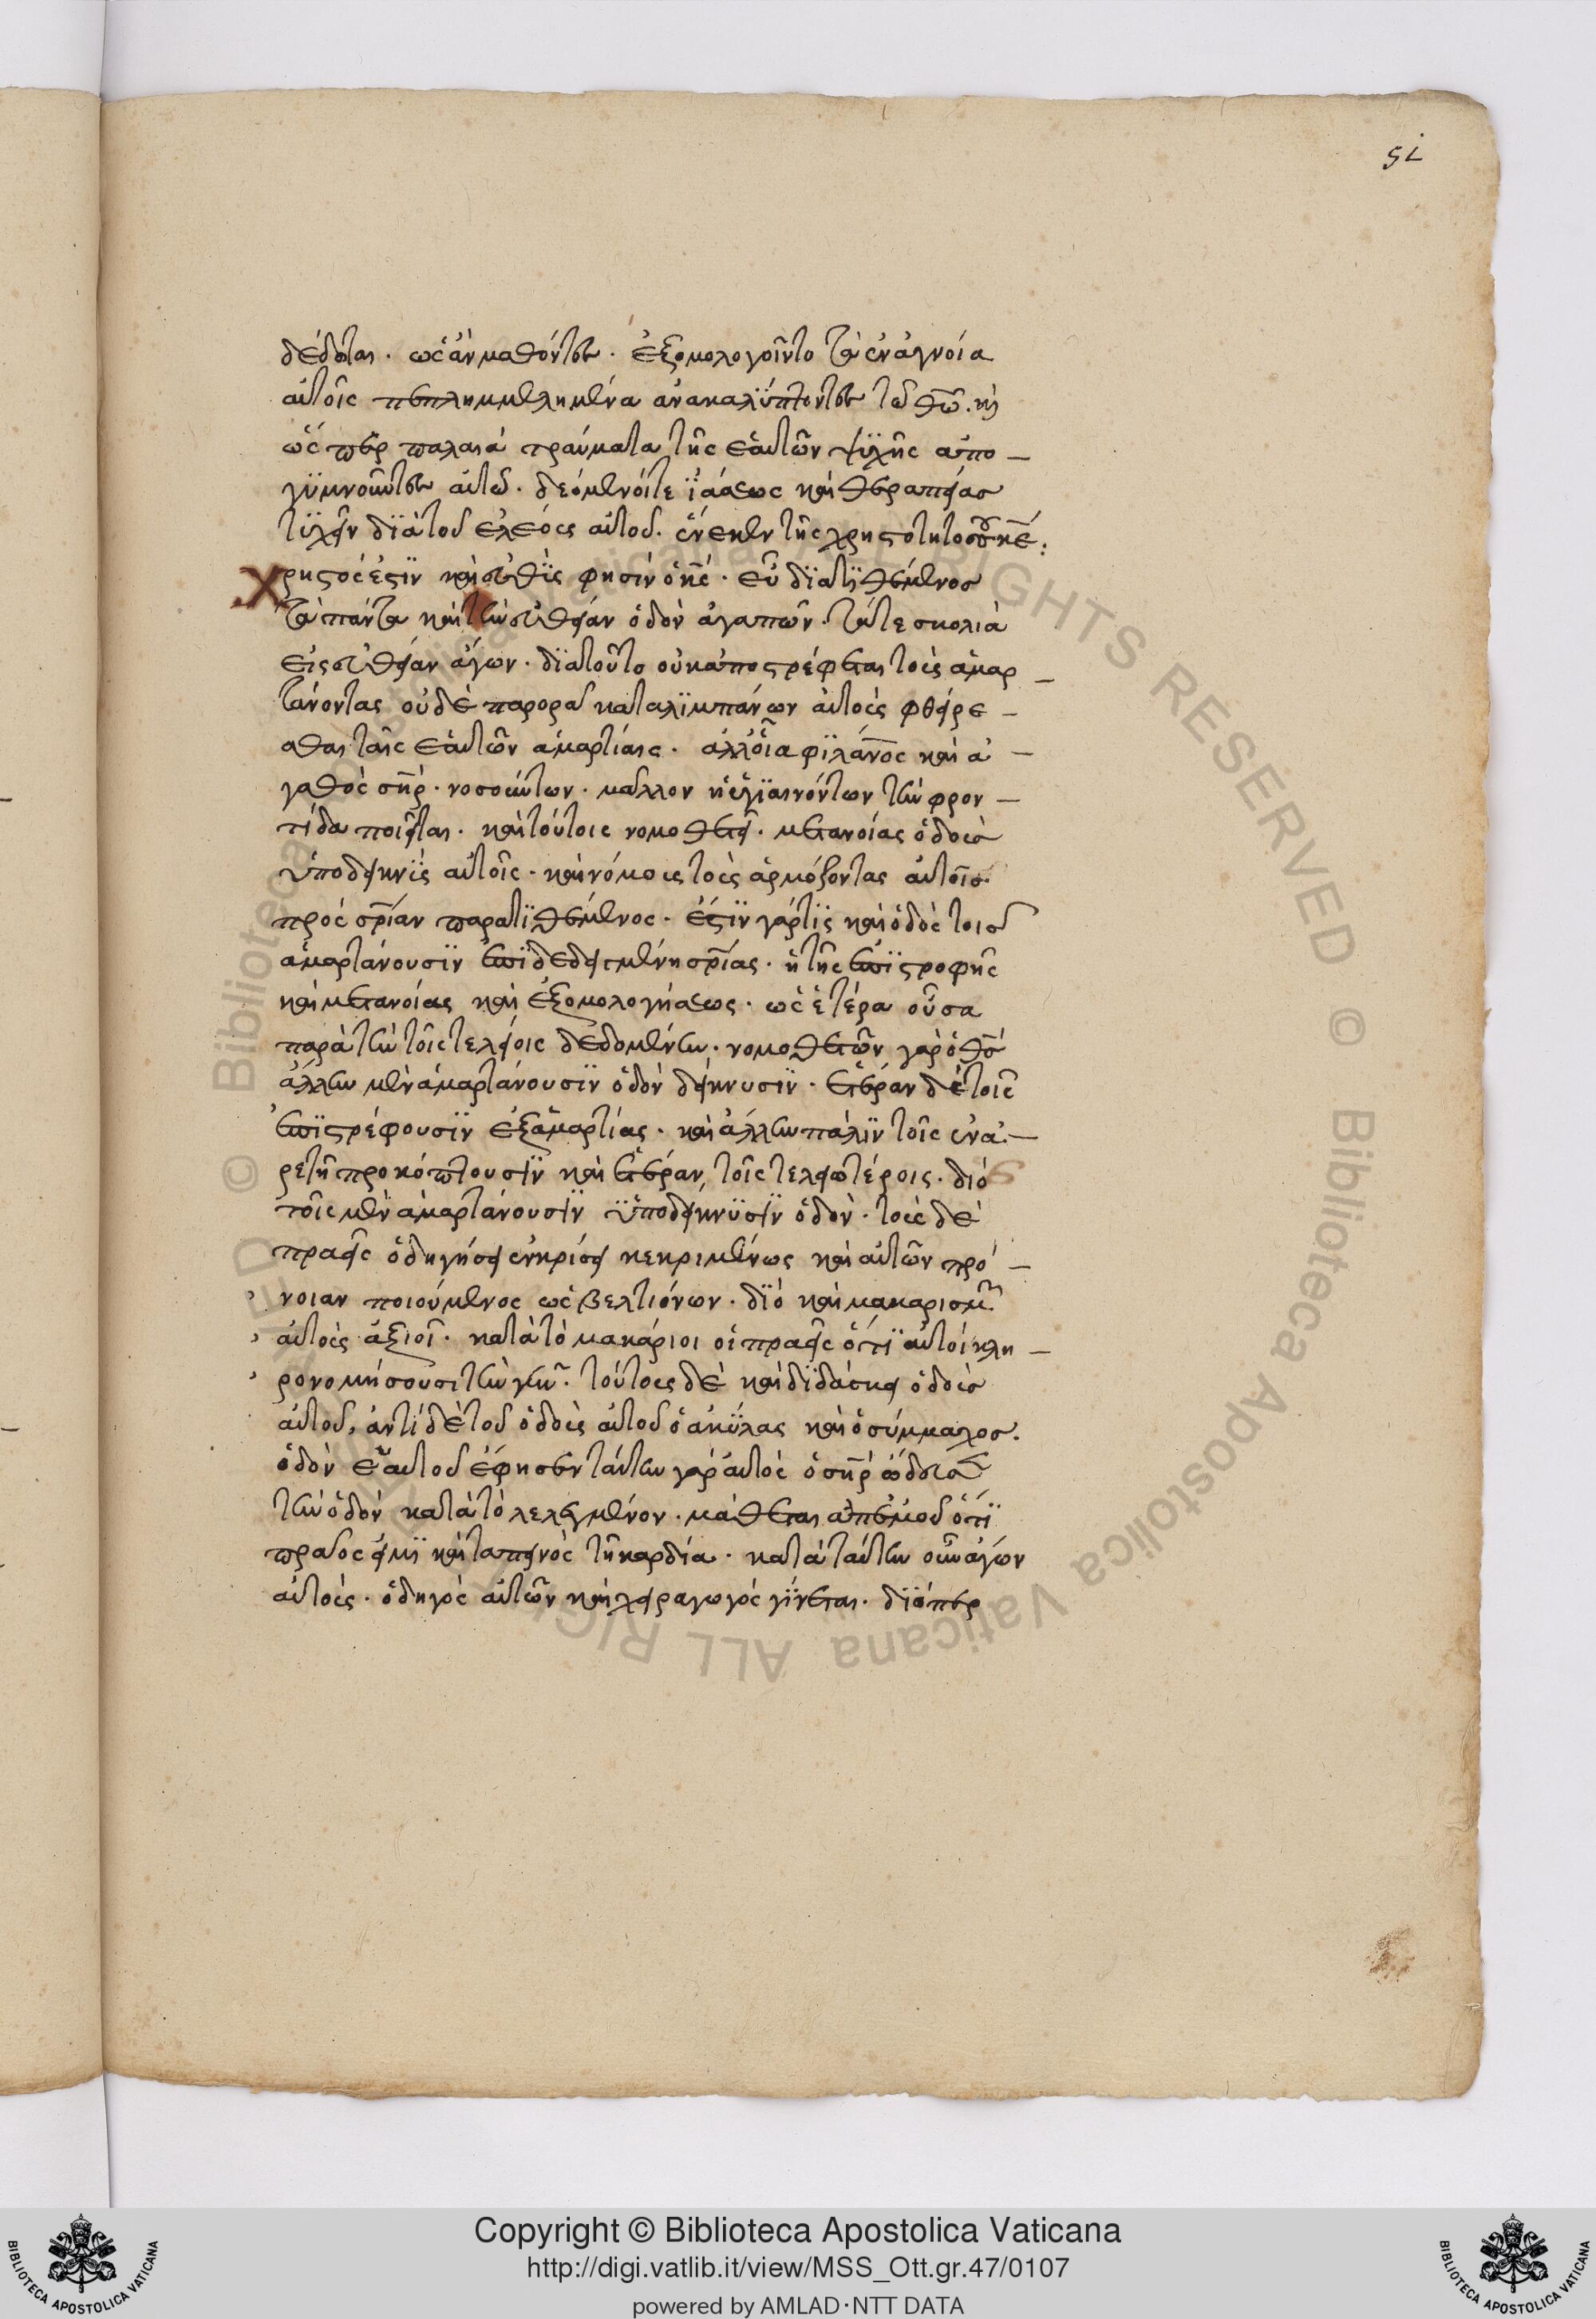 51
δέδοται. ὡς ἂν μαθόντες. ἐξομολογοῖντο τὰ ἐν ἀγνοία
αὐτοῖς πεπλημμελημένα ἀνακαλύπτοντες τῶ θ̅ω̅. κ̀
ὥσπερ παλαιὰ τραύματα τῆς ἑαυτῶν ψυχῆς απο –
γυμνοῦντες αὐτῶ. δεόμενοί τε ϊάσεως καὶ θεραπείας
τυχεῖν διὰ τοῦ ἐλέους αὐτοῦ. ἕνεκεν τῆς χρηστότητός σου κ̅ε̅:
Χρηστός ἐστϊν καὶ εὐθῒς φησὶν ὁ κ̅ς̅. εὖ διατιθέμενος
τὰ πάντα καὶ τὴν εὐθείαν ὁδὸν ἀγαπῶν. τά τε σκολιὰ
εἰς εὐθείαν ἄγων. διατοῦτο οὐκ ἀποστρέφεται τοὺς ἁμαρ –
τάνοντας οὐδὲ παρορᾶ καταλιμπάνων αὐτοὺς φθείρε –
σθαι ταῖς ἑαυτῶν ἁμαρτίαις. ἀλλ' οἷα φιλάν̅ο̅ς καὶ ἀ –
γαθὸς σ̅η̅ρ̅. νοσούντων. μᾶλλον ἢ ὑγϊαινόντων τὴν φρον –
τίδα ποιεῖται. καὶ τούτοις νομοθετεῖ. μετανοίας ὁδοὺς
ὑποδεικνῒς αὐτοῖς. καὶ νόμους τοὺς ἁρμόζοντας αὐτοῖς.
πρὸς σ̅ρ̅ίαν παρατιθέμενος. ἔστϊν γάρ τῒς καὶ ὁδὸς τοῖς
ἁμαρτάνουσϊν ἐπιδεδειγμένη σ̅ρ̅ίας. ἡ τῆς ἐπϊστροφῆς
καὶ μετανοίας καὶ ἐξομολογήσεως. ὡς ἑτέρα οὖσα
παρὰ τὴν τοῖς τελείοις δεδομένην. νομοθετῶν γὰρ ὁ θ̅ς̅
ἄλλην μὲν ἁμαρτάνουσϊν ὁδὸν δείκνυσϊν. ἑτέραν δὲ τοῖς
ἐπϊστρέφουσϊν ἐξ ἁμαρτίας. καὶ ἄλλην πάλϊν τοῖς ἐν ἀ –
ρετῆ προκόπτουσϊν καὶ ἑτέραν, τοῖς τελειωτέροις. διό
τοῖς μὲν ἁμαρτάνουσϊν ὑποδείκνϋσϊν ὁδὸν. τοὺς δὲ
πραεῖς ὁδηγήσει ἐν κρίσει κεκριμένως καὶ αὐτῶν πρό –
νοιαν ποιούμενος ὡς βελτιόνων. δϊὸ καὶ μακαρισμ̅
αὐτοὺς ἀξιοῖ. κατὰ τὸ μακάριοι οἱ πραεῖς ὅτϊ αὐτοὶ κλη –
ρονομήσουσι τὴν γῆν. τούτους δὲ καὶ διδάσκει ὁδοὺς
αὐτοῦ, ἀντὶ δὲ τοῦ ὁδοὺς αὐτοῦ ὁ ἀκύλας καὶ ὁ σύμμαχος.
ὁδὸν ἑαυτοῦ ἔφησεν ταύτην γὰρ αὐτὸς ὁ σ̅η̅ρ̅ ὥδευσε
τὴν ὁδὸν κατὰ τὸ λελεγμένον. μάθεται ἀπ' ἐμοῦ ὅτϊ
πρᾶος εἰμϊ καὶ ταπεινὸς τῆ καρδία. κατὰ ταύτην οὖν ἄγων
αὐτοὺς. ὁδηγὸς αὐτῶν καὶ χειραγωγὸς γίνεται. δϊόπερ
© Biblioteca Apostolica Vaticana ALL RIGHTS RESERVED
© Biblioteca Apostolica Vaticana ALL RIGHTS RESERVED
BIBLIOTECA APOSTOLICA VATICANA
Copyright © Biblioteca Apostolica Vaticana
http://digi.vatlib.it/view/MSS_Ott.gr.47/0107
powered by AMLAD·NTT DATA
BIBLIOTECA APOSTOLICA VATICANA